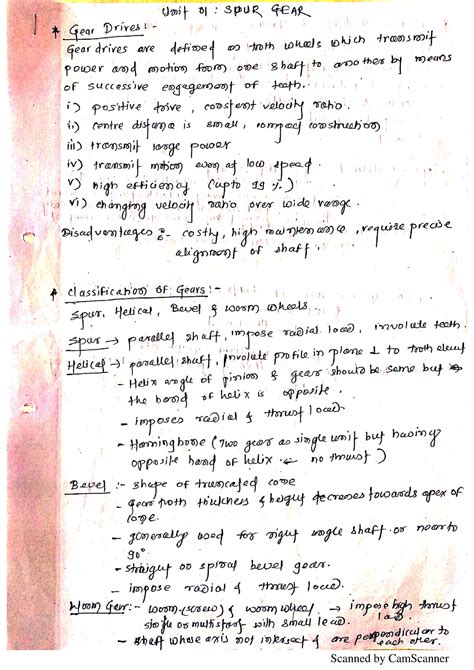 Unit 01 : SPUR GEAR
* Gear Drives :-
Gear drives are defined as tooth wheels which transmit
power and motion from one shaft to another by means
of successive engagement of teeth.
i) positive drive, constant velocity ratio.
ii) centre distance is small, compact construction
iii) transmit large power
iv) transmit motion even at low speed.
v) high efficiency (upto 99 %)
vi) changing velocity ratio over wide range.
Disadvantages :- costly, high maintenance, require precise
alignment of shaft.
* Classification of Gears :-
Spur, Helical, Bevel & worm wheels.
Spur → parallel shaft, impose radial load, involute teeth.
Helical → parallel shaft, involute profile in plane ⊥ to tooth element
- Helix angle of pinion & gear should be same but
the hand of helix is opposite.
- imposes radial & thrust load.
- Herringbone (Two gear as single unit but having
opposite hand of helix. ← no thrust)
Bevel :- shape of truncated cone
- Gear tooth thickness & height decreases towards apex of
cone.
- generally used for right angle shaft or near to
90°.
- straight or spiral bevel gear.
- impose radial & thrust load.
Worm Gear :- worm (screw) & worm wheel. → impose high thrust
single or multistart with small lead. load.
- shaft whose axis not intersect & are perpendicular to
each other.
Scanned by CamScanner